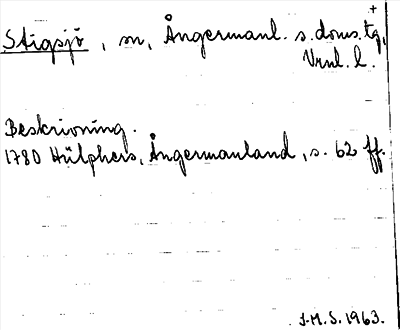 Stigsjö, sn, Ångermanl. s. doms. tg,
Vrnl. l.
Beskrivning.
1780 Hülphers, Ångermanland, s. 62 ff.
J.M.S. 1963.